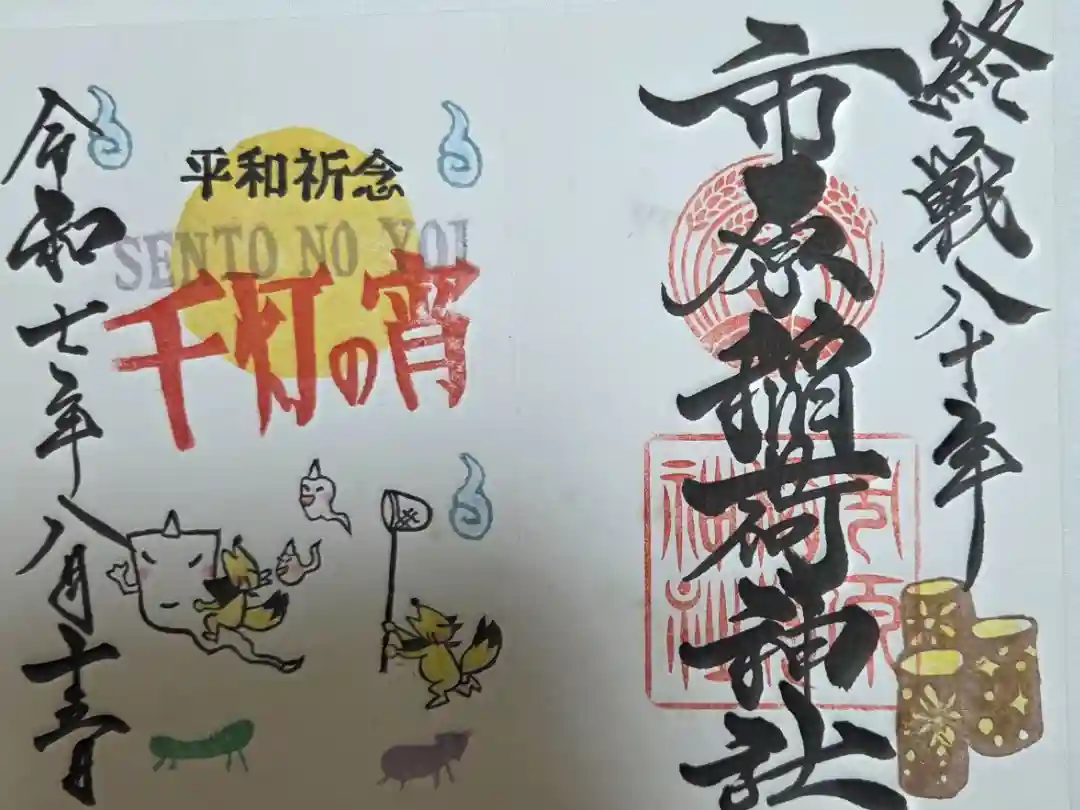 終戦八十年
市原稲荷神社
平和祈念
SENTO NO YOI
千灯の宵
令和七年八月十五日